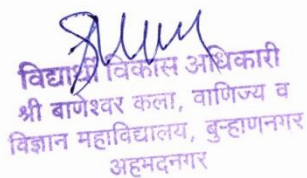 विद्यार्थी विकास अधिकारी
श्री बाणेश्वर कला, वाणिज्य व
विज्ञान महाविद्यालय, बुऱ्हाणनगर
अहमदनगर